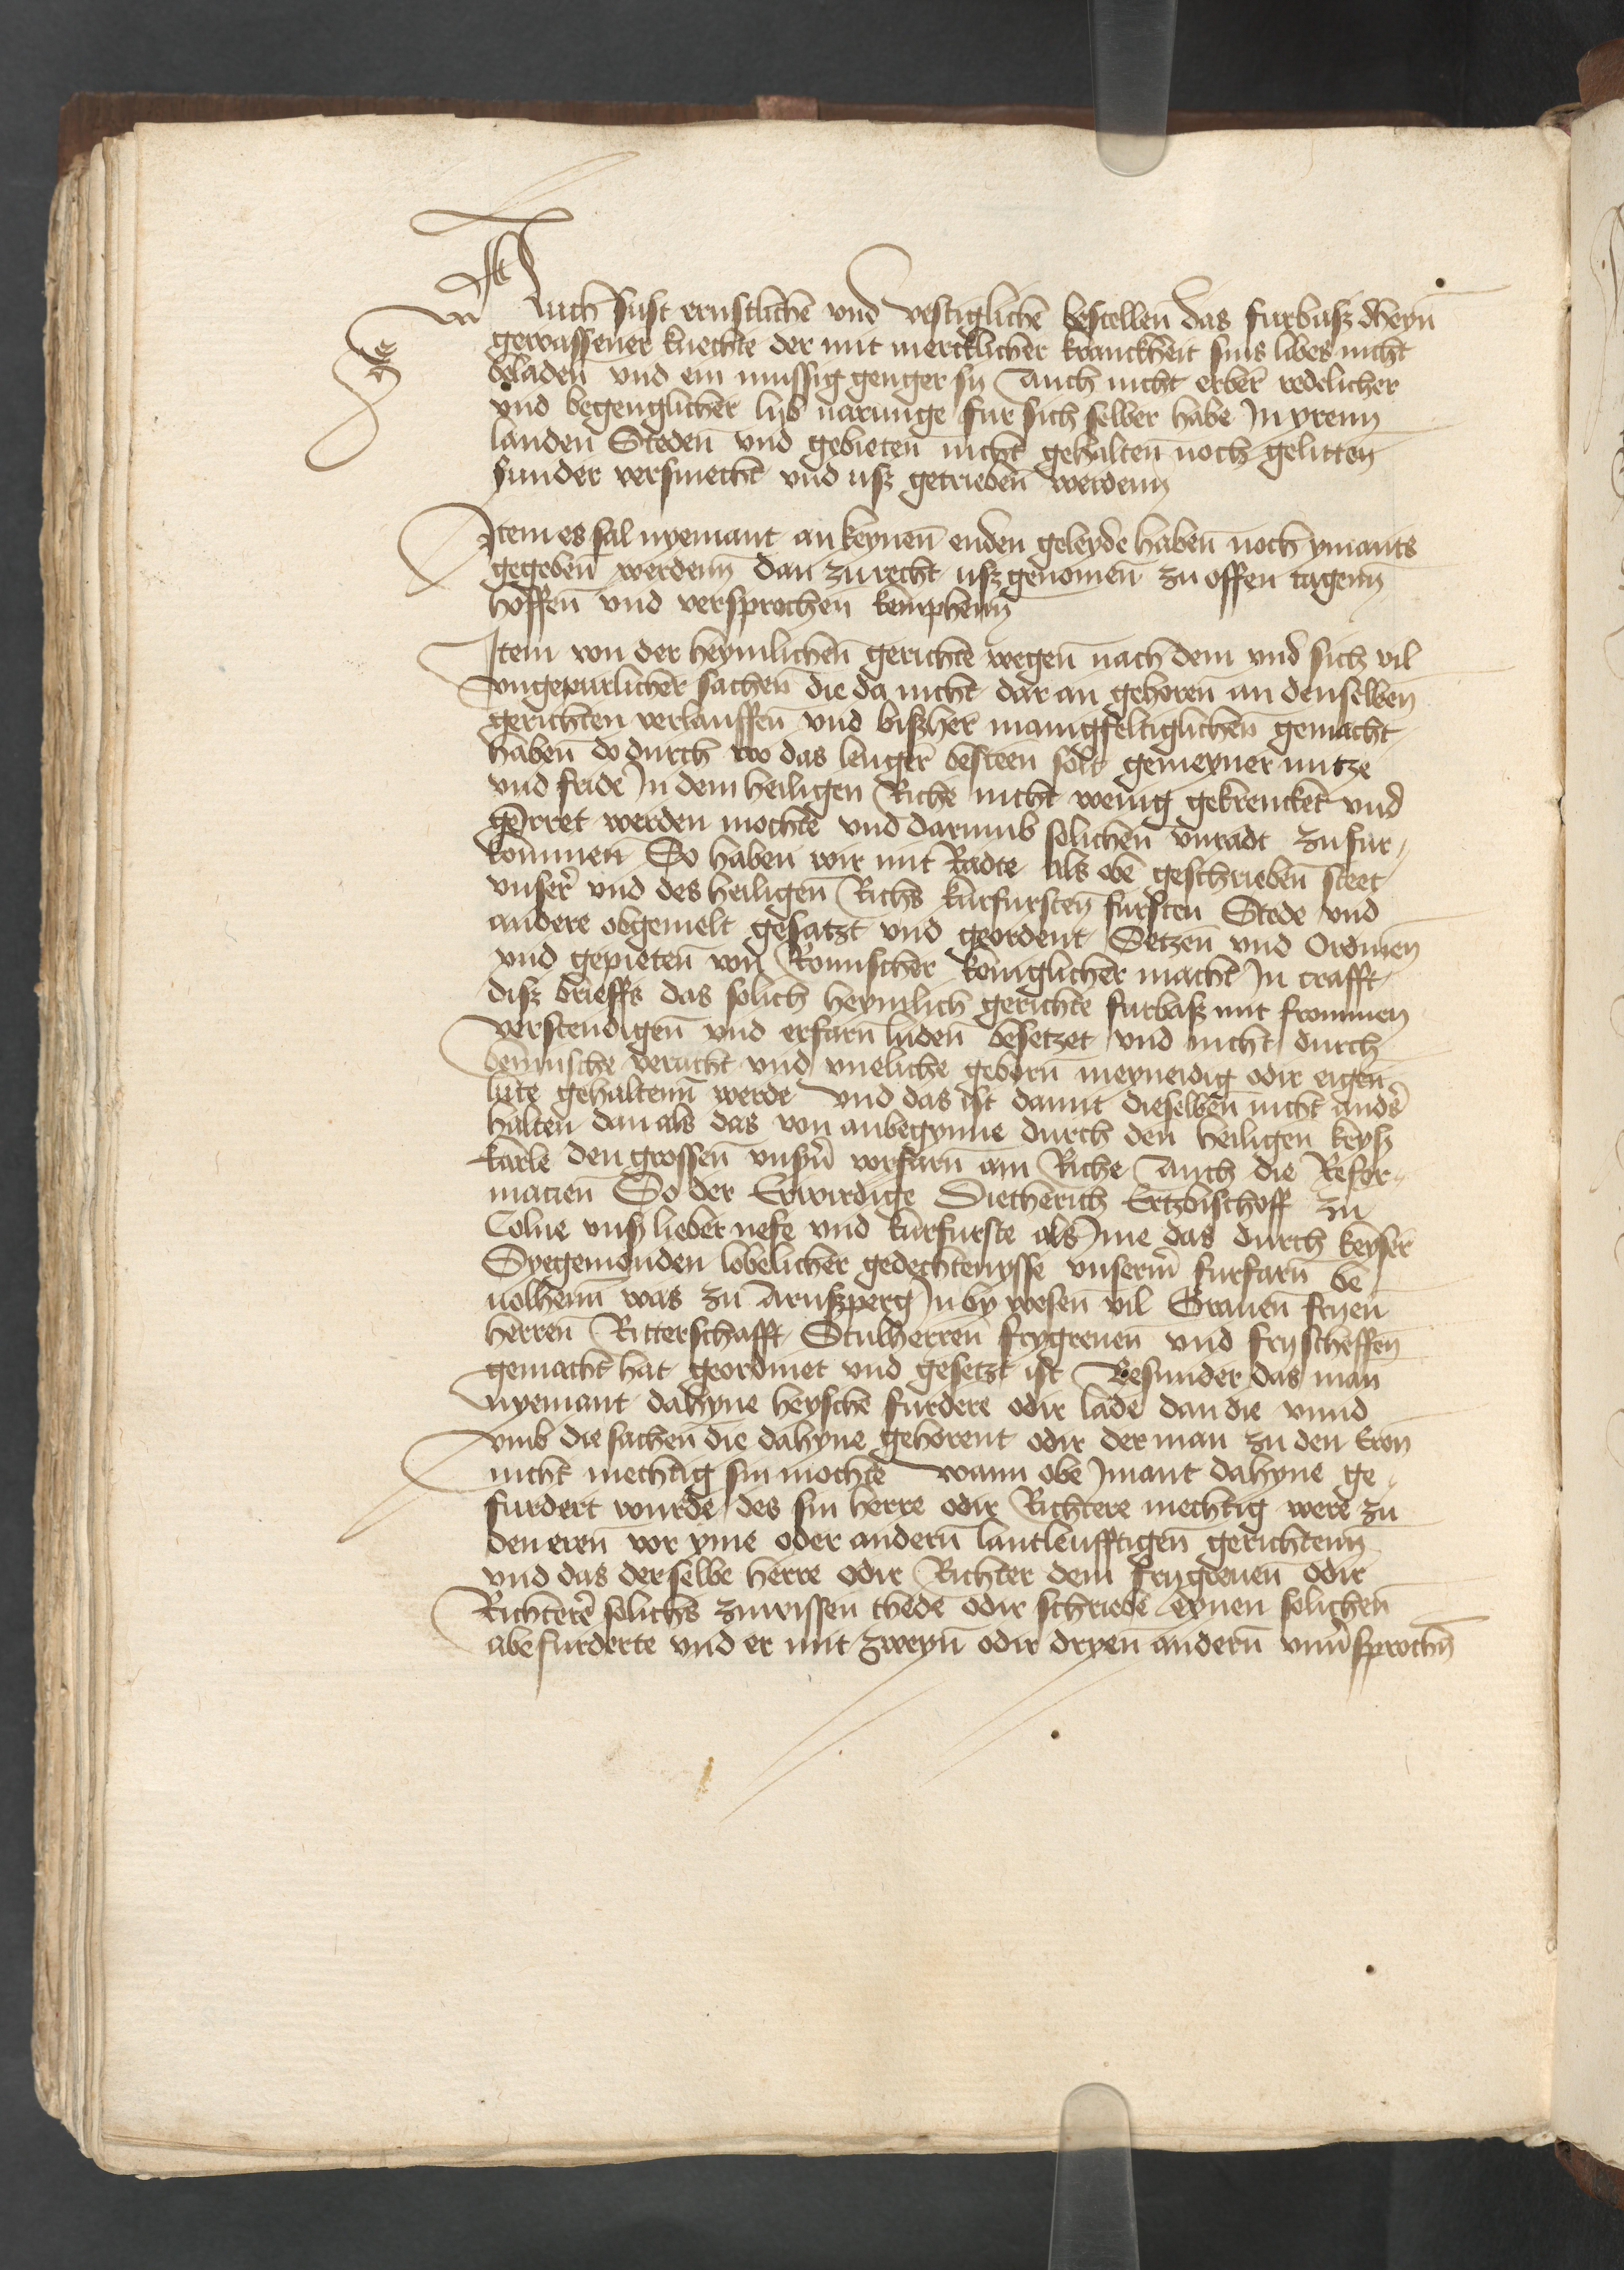 Auch sust ernstlichen und vestiglichen bestellen das furbasz dheyn
gewassener knechte der mit mercklicher kranckheit sins libes nicht
beladen und ein mussig genger sy Auch nicht erber redelicher
und begenglicher lyb narunge fur sich selber habe In yrenn
landen Steden und gebieten nicht gehalten noch gelitten
sunder versmecht und usz getrieben werdenn
Item es sal nyemant an keynen enden geleyde haben noch ymants
gegeben werdenn dan zu recht usz genomen zu offen tagenn
hoffen und versprochen kemphenn
Item von der heymlichen gerichte wegen nach dem und sich vil
ungepurlicher sachen die da nicht dar an gehoren an denselben
gerichten verlauffen und biszher manigfeltiglichen gemacht
haben do durch wo das lenger besteen solt gemeyner nutze
und fride In dem heiligen Riche nicht wenig gekrencket und
geirret werden mochte und darumb solichen unradt zu fur¬
kommen So haben wir mit Radte als obe geschrieben steet
unser und des heiligen Richs kurfursten fursten Stede und
andere obgemelt gesatzt und geordent Setzen und Ordnen
und gepieten von Romischer koniglicher macht In crafft
disz brieffs das solich heymlich gerichte furbasz mit frommen
verstendigen und erfarn luden besetzet und nicht durch
bennische veracht und uneliche geborn meyneidig odir eigen
lute gehaltenn werde und das ist damit dieselben nicht anders
halten dan als das von anbegynne durch den heiligen keysz
karle den grossen unsern vorfarn am Riche Auch die Refor¬
macien So der Erwirdige Dietherich Ertzbischoff zu
Colne unsz lieber nefe und kurfurste als Ime das durch keyser
Syegemonden lobelicher gedechtenysse unserm furfarn be
uolhenn was zu Arnszperg In by wesen vil Grauen fryen
herren Ritterschafft Stulherren frygreuen und fryscheffen
gemacht hat geordniet und gesetzt ist Besunder das man
nyemant dahyne heysche furdere odir lade dan die unnd
umb die sachen die dahyne gehorent odir der man zu den Eren
nicht mechtig sin mochte wann obe Imant dahyne ge¬
furdert wurde des sin herre odir Richtere mechtig were zu
den eren vor yme oder andern lantleufftigen gerichtenn
und das derselbe herre odir Richter dem frygreuen odir
Richtere solichs zuwissen thede odir schriebe eynen solichen
abefurderte und er mit zweyn odir dryen andern unversprochen